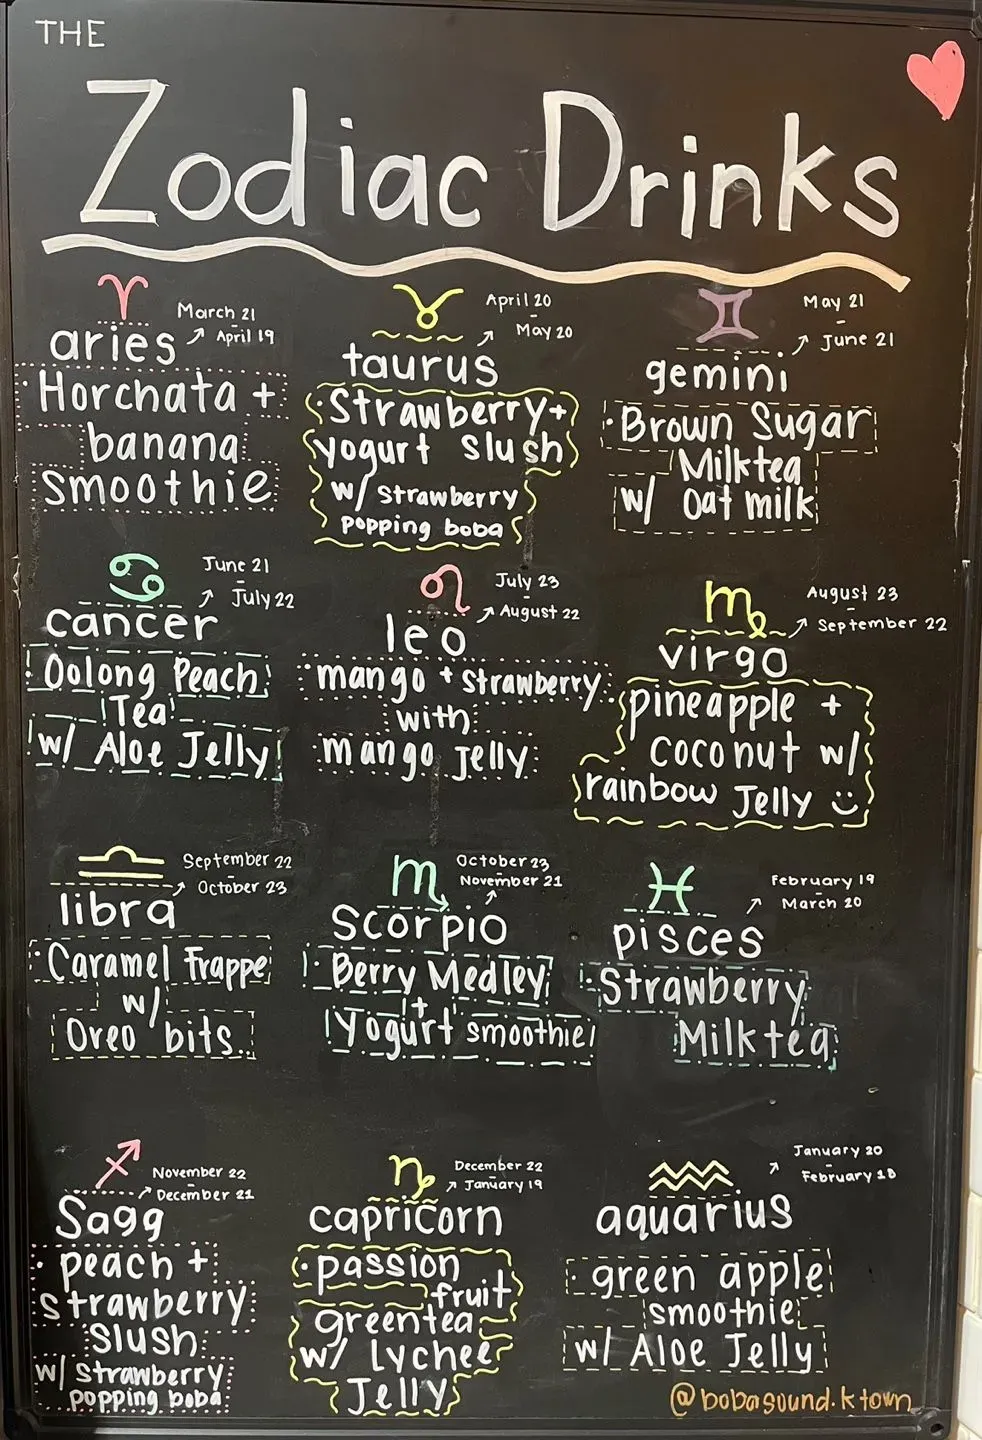 THE
Zodiac Drinks
March 21
-
April 19
aries
· Horchata +
banana
smoothie
April 20
-
May 20
taurus
· Strawberry +
yogurt slush
w/ strawberry
popping boba
May 21
-
June 21
gemini
· Brown Sugar
Milktea
w/ Oat milk
June 21
-
July 22
cancer
· Oolong Peach
Tea
w/ Aloe Jelly
July 23
-
August 22
leo
· mango + strawberry
with
mango jelly
August 23
-
September 22
virgo
pineapple +
coconut w/
rainbow Jelly
September 22
-
October 23
libra
· Caramel Frappe
w/
Oreo bits
October 23
November 21
scorpio
· Berry Medley
+
Yogurt smoothie
February 19
March 20
pisces
· Strawberry
Milktea
November 22
-
December 21
Sagg
· peach +
strawberry
slush
w/ strawberry
popping boba
December 22
-
January 19
capricorn
· passion
fruit
greentea
w/ Lychee
Jelly
January 20
-
February 18
aquarius
· green apple
smoothie
w/ Aloe Jelly
@bobasound.ktown